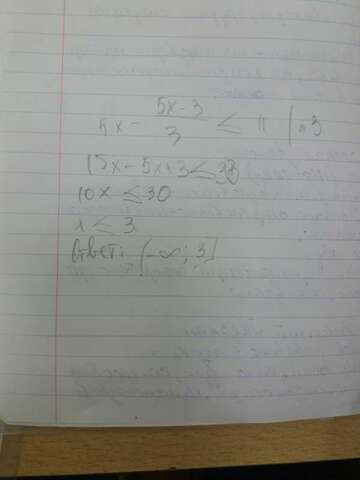 5x - (5x-3)/3 ≤ 11 | · 3
15x - 5x+3 ≤ 33
10x ≤ 30
x ≤ 3
Ответ: (-∞; 3]